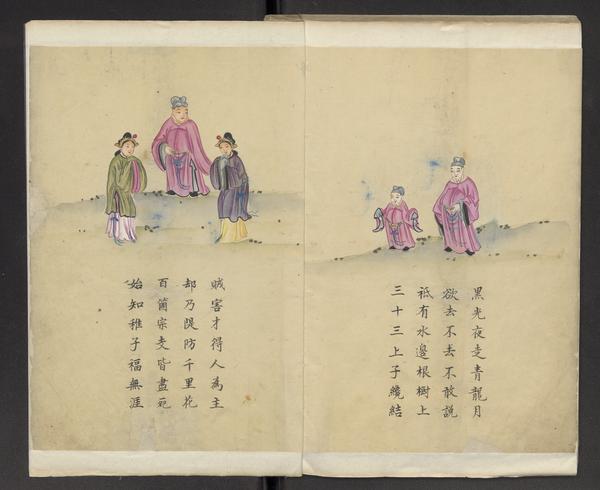 黑光夜走青龍月
欲去不去不敢說
祗有水邊根樹上
三十三上子纔結
賊害才得人為主
却乃隄防千里花
百箇宗支皆盡死
始知稚子福無涯